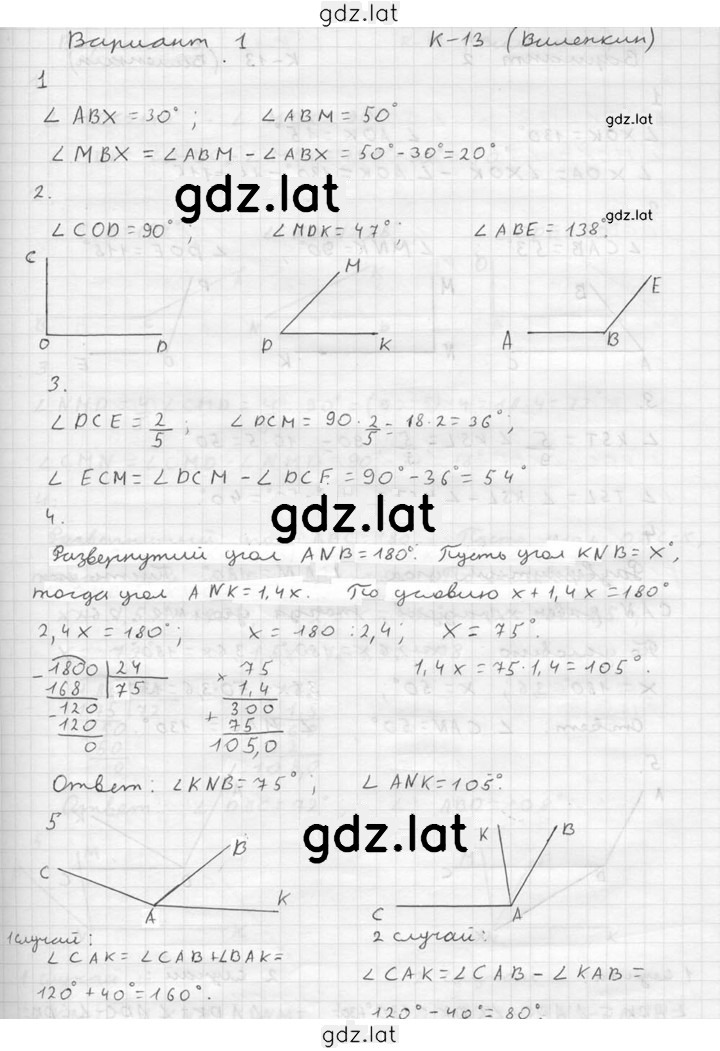 gdz.lat
Вариант 1 К-13 (Виленкин)
1
∠ ABX = 30°; ∠ ABM = 50°
gdz.lat
∠ MBX = ∠ABM - ∠ABX = 50° - 30° = 20°
2.
gdz.lat
gdz.lat
∠ COD = 90°; ∠ MDK = 47°; ∠ ABE = 138°.
C M E
O D D K A B
3.
∠ DCE = 2/5; ∠ DCM = 90 · 2/5 = 18·2 = 36°;
∠ ECM = ∠ DCM - ∠ DCE = 90° - 36° = 54°
gdz.lat
4.
Развернутий угол ANB = 180°. Пусть угол KNB = x°,
тогда угол ANK = 1,4x. По условию x + 1,4x = 180°
2,4x = 180°; x = 180 : 2,4; x = 75°.
1800 24 × 75 1,4x = 75·1,4 = 105°.
- 168 75 1,4
- 120 300
120 + 75
0 105,0
Ответ: ∠KNB = 75°; ∠ ANK = 105°.
5
gdz.lat
C B K A
K B C A
1 случай: 2 случай:
∠ CAK = ∠CAB + ∠BAK =
120° + 40° = 160°.
∠ CAK = ∠CAB - ∠KAB =
120° - 40° = 80°.
gdz.lat